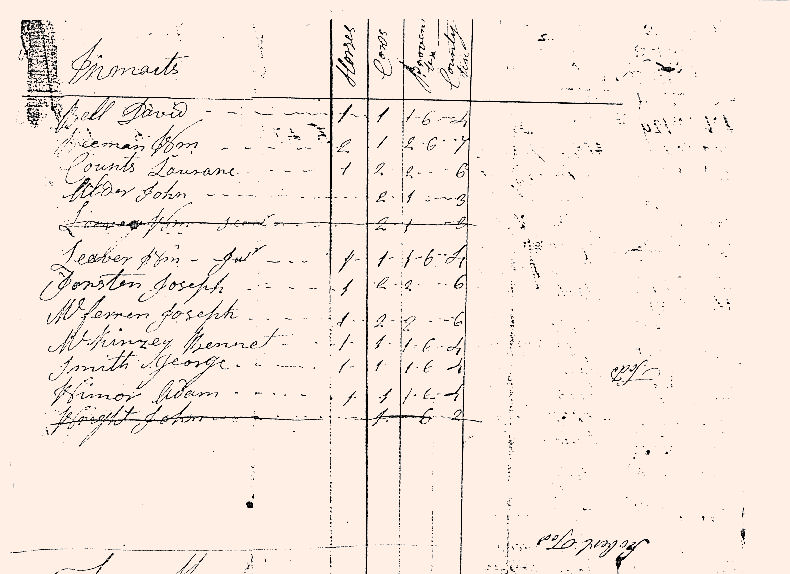 Inmaits Horses Cows County
Bell David - - - 1 1 1-6 - 4
Wm - - - 2 1 2-6 - 7
Counts Lourane - - - 1 2 2 - - 6
Alder John - - - 2 1 - - 3
Wm 2 1 - - 3
Leaber Wm - Junr - - - 1 1 1-6 - 4
Joseph - - - 1 2 2 - - 6
McFerren Joseph - - - 1 2 2 - - 6
McKinzey Bennet - - 1 1 1-6 - 4
Smith George - - - 1 1 1-6 - 4
Adam - - - 1 1 1-6 - 4
Wright John - - - 1 - 6 2
Tods
Robert Tod